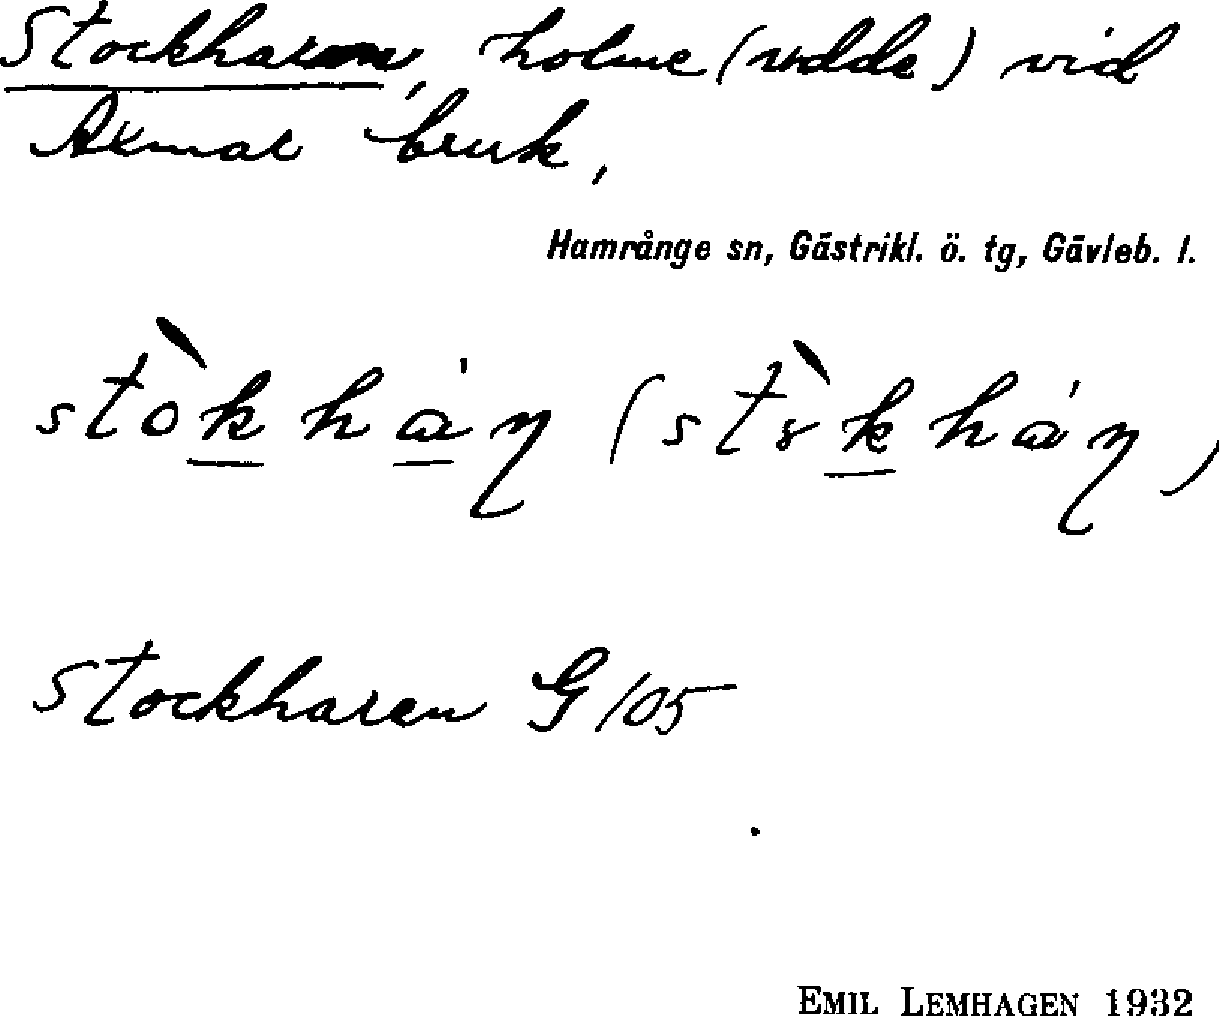 Stockharen, holme (udde) vid
Axmar bruk,
Hamrånge sn, Gästrikl. ö. tg, Gävleb. l.
Stockharen G/105
EMIL LEMHAGEN 1932